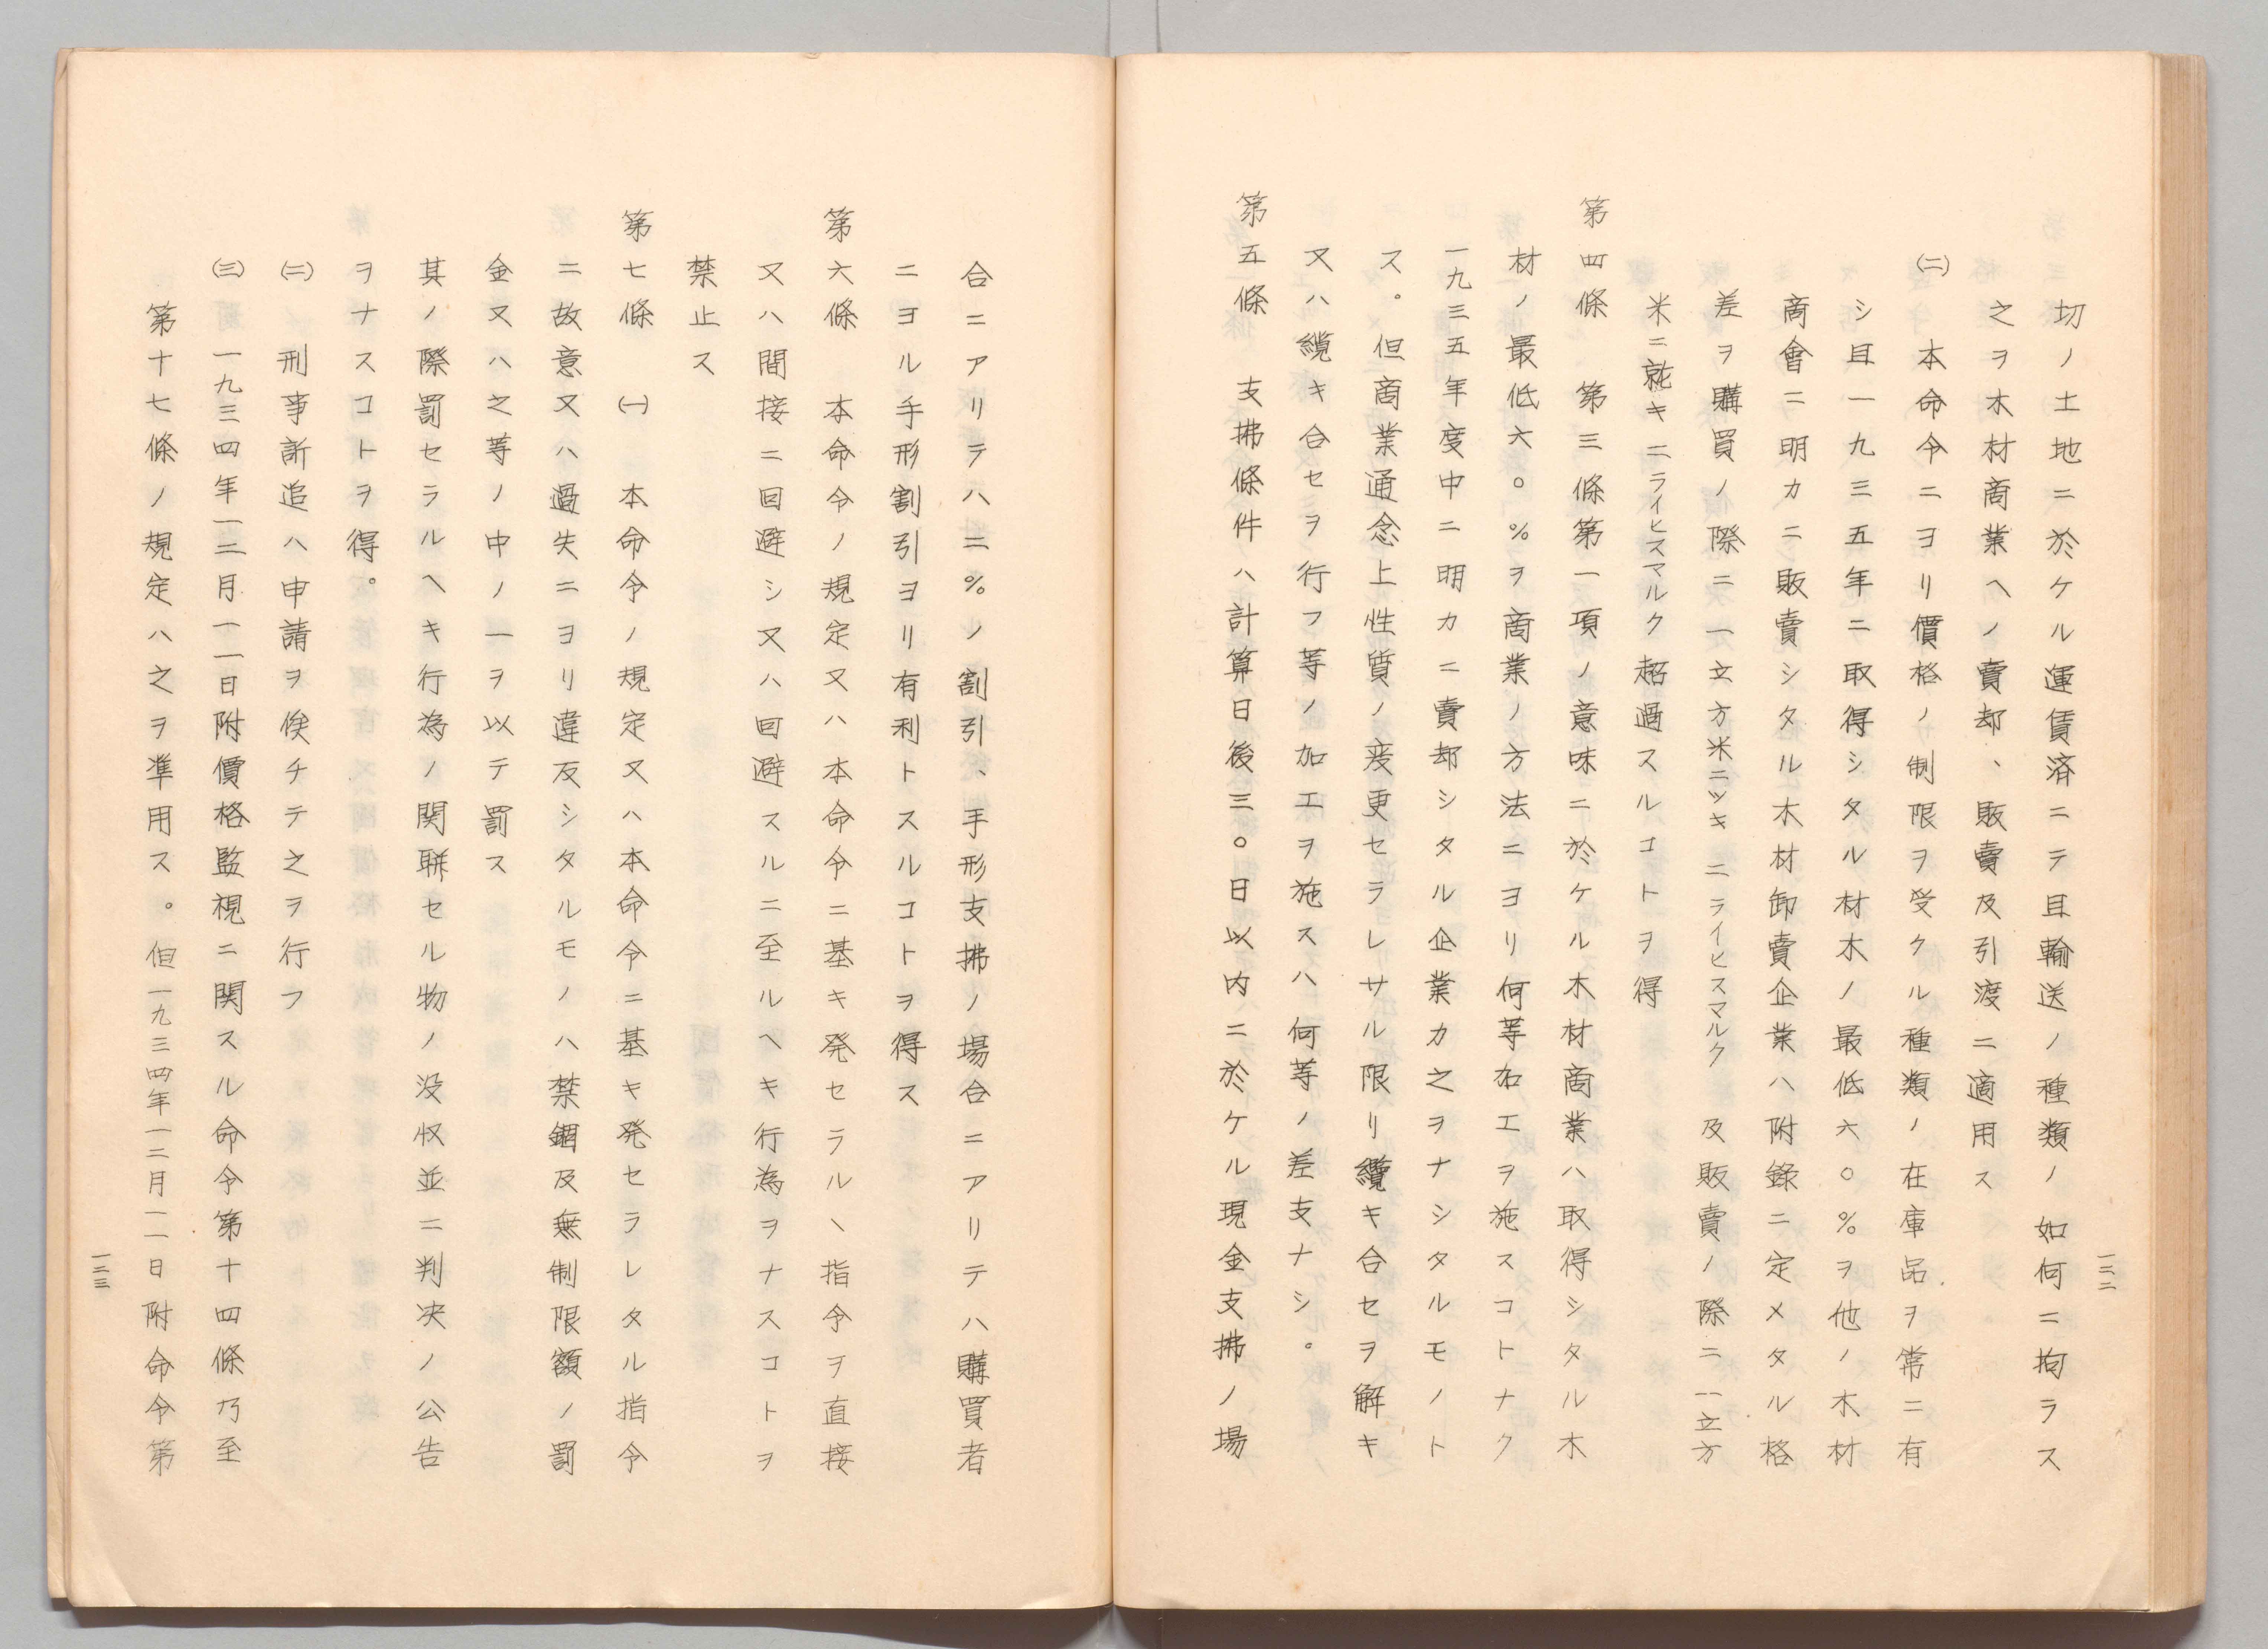 切ノ土地ニ於ケル運賃済ニテ且輸送ノ種類ノ如何ニ拘ラス
之ヲ木材商業ヘノ賣却、販賣及引渡ニ適用ス
㈡　本命令ニヨリ價格ノ制限ヲ受クル種類ノ在庫品ヲ常ニ有
シ且一九三五年ニ取得シタル材木ノ最低六〇%ヲ他ノ木材
商會ニ明カニ販賣シタル木材卸賣企業ハ附錄ニ定メタル格
差ヲ購買ノ際ニ一立方米ニツキ二ライヒスマルク　及販賣ノ際ニ一立方
米ニ就キ二ライヒスマルク超過スルコトヲ得
第四條　第三條第一項ノ意味ニ於ケル木材商業ハ取得シタル木
材ノ最低六〇%ヲ商業ノ方法ニヨリ何等加工ヲ施スコトナク
一九三五年度中ニ明カニ賣却シタル企業カ之ヲナシタルモノト
ス。但商業通念上性質ノ変更セラレサル限リ纜キ合セヲ解キ
又ハ纜キ合セヲ行フ等ノ加工ヲ施スハ何等ノ差支ナシ。
第五條　支拂條件ハ計算日後三〇日以内ニ於ケル現金支拂ノ場
一三二
合ニアリテハ二%ノ割引、手形支拂ノ場合ニアリテハ購買者
ニヨル手形割引ヨリ有利トスルコトヲ得ス
第六條　本命令ノ規定又ハ本命令ニ基キ発セラルヽ指令ヲ直接
又ハ間接ニ回避シ又ハ回避スルニ至ルヘキ行為ヲナスコトヲ
禁止ス
第七條　㈠　本命令ノ規定又ハ本命令ニ基キ発セラレタル指令
ニ故意又ハ過失ニヨリ違反シタルモノハ禁錮及無制限額ノ罰
金又ハ之等ノ中ノ一ヲ以テ罰ス
其ノ際罰セラルヘキ行為ノ関聯セル物ノ没収並ニ判決ノ公告
ヲナスコトヲ得。
㈡　刑事訴追ハ申請ヲ俟チテ之ヲ行フ
㈢　一九三四年一二月一一日附價格監視ニ関スル命令第十四條乃至
第十七條ノ規定ハ之ヲ準用ス。但一九三四年一二月一一日附命令第
一三三